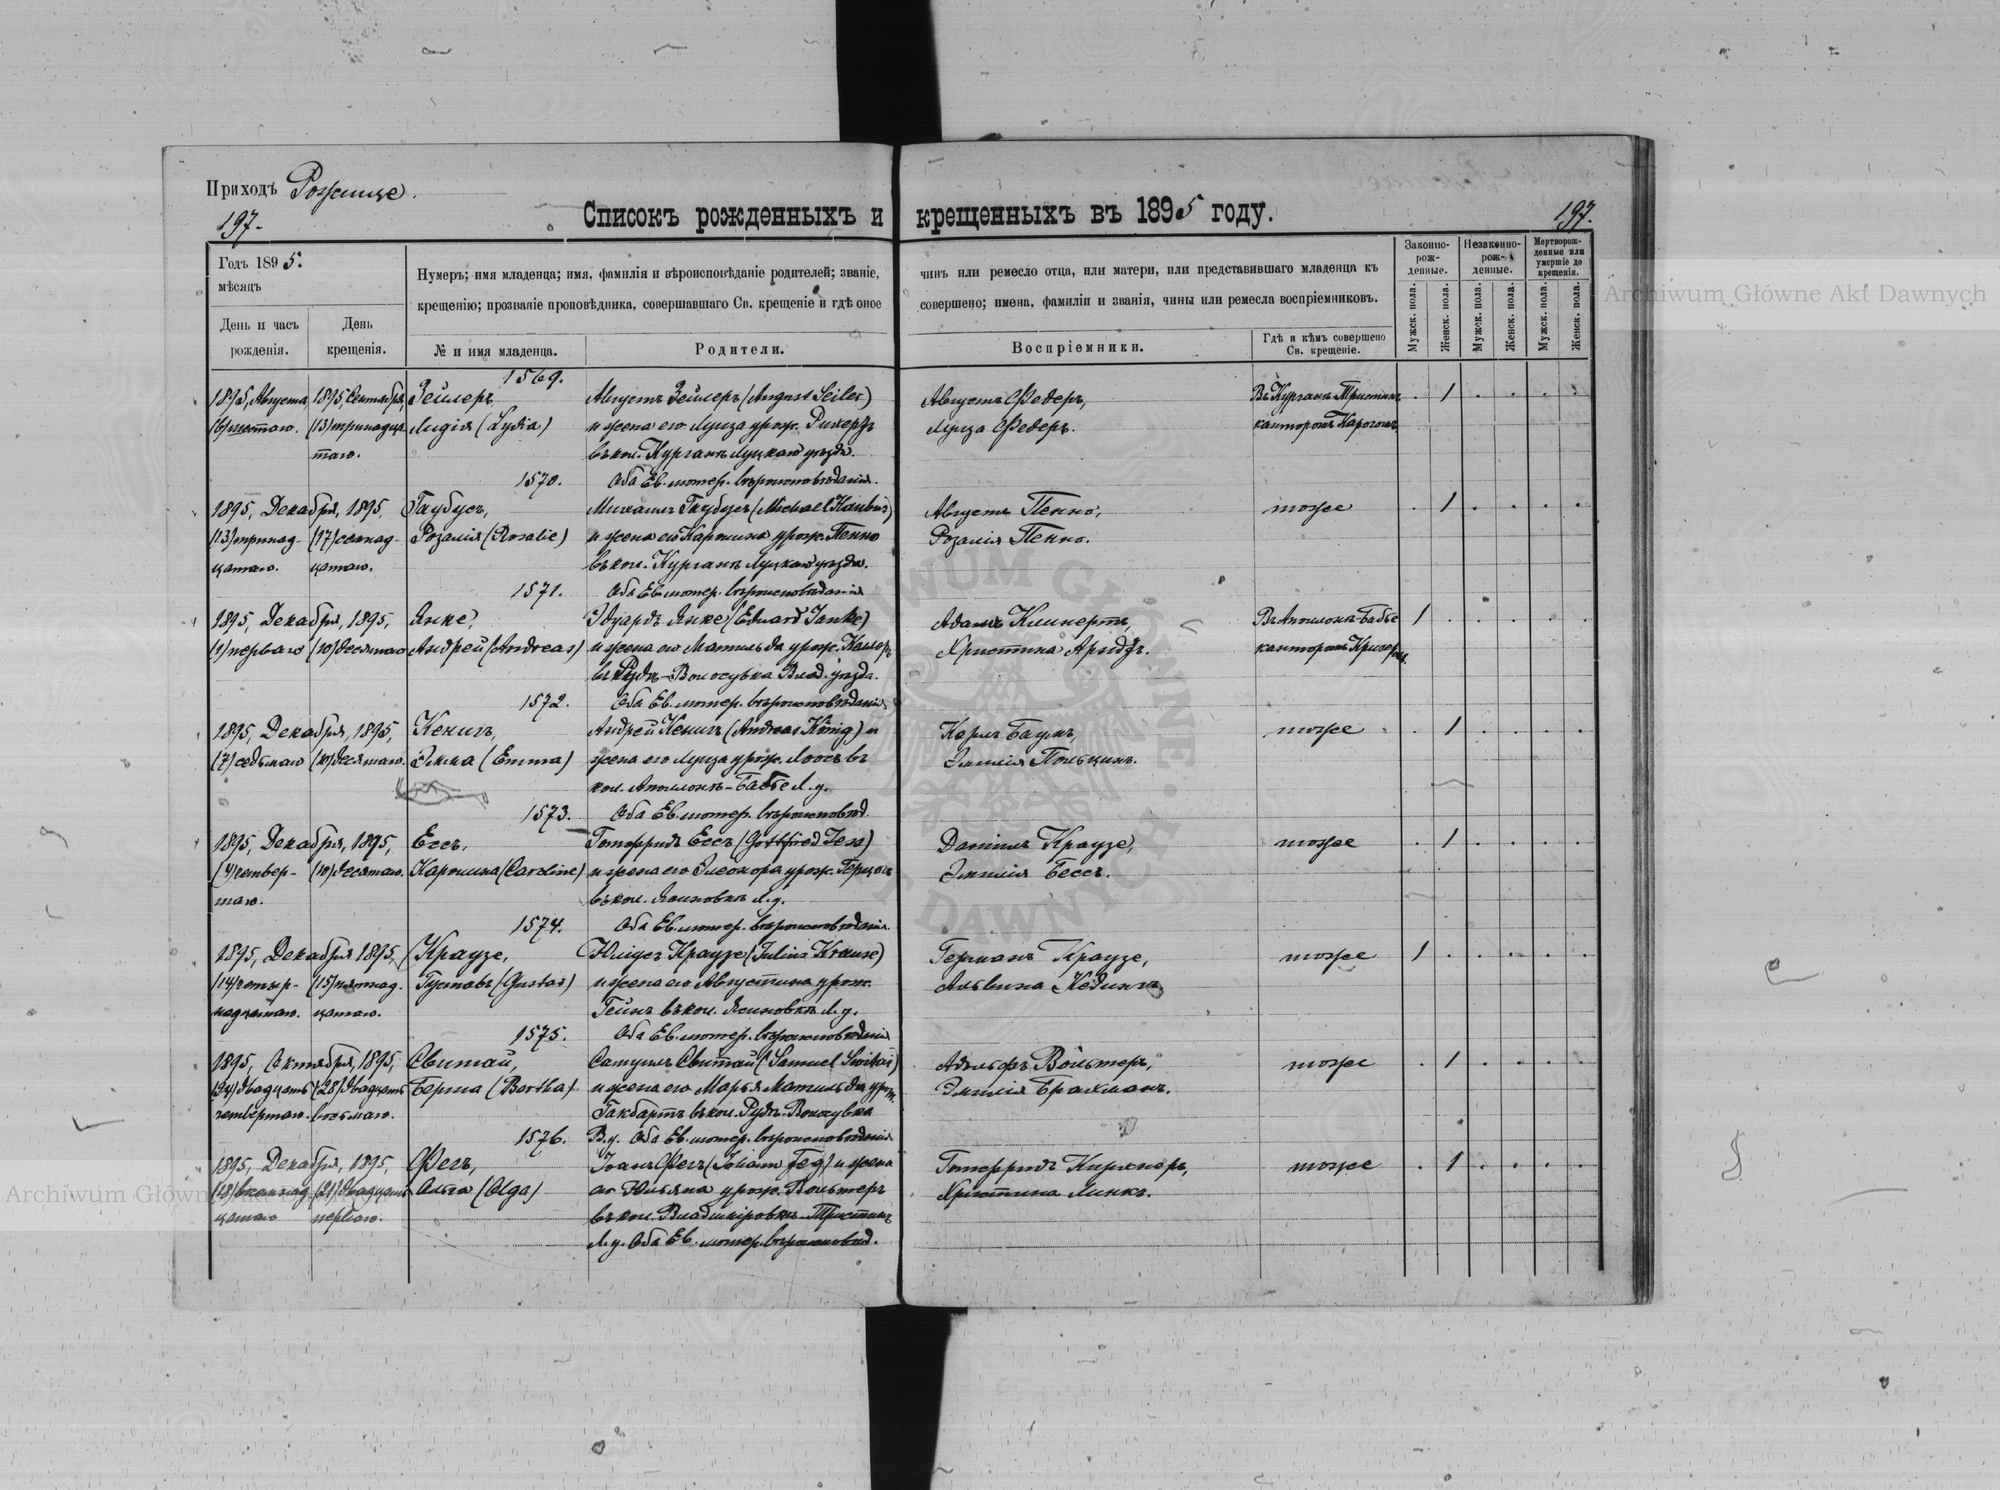 Приходъ Рожище.
197.
Списокъ рожденныхъ и крещенныхъ въ 1895 году.
197.
Годъ 1895.
мѣсяцъ
День и часъ рожденія.
День крещенія.
Нумеръ; имя младенца; имя, фамилія и вѣроисповѣданіе родителей; званіе, чинъ или ремесло отца, или матери, или представившаго младенца къ
крещенію; прозваніе проповѣдника, совершавшаго Св. крещеніе и гдѣ оное совершено; имена, фамиліи и званія, чины или ремесла воспріемниковъ.
№ и имя младенца.
Родители.
Воспріемники.
Гдѣ и кѣмъ совершено Св. крещеніе.
Законно-рож-денные.
Незаконно-рож-денные.
Мертворож-денные или умершіе до крещенія.
Мужск. пола.
Женск. пола.
Мужск. пола.
Женск. пола.
Мужск. пола.
Женск. пола.
1569.
1895, Августа 1895, Сентября, Зейлеръ, Августъ Зейлеръ (August Seiler) Августъ Федеръ, Въ Курганъ Тристинъ 1
(6) шестаго. (13) тринадца- Лидія (Lydia) и жена его Луиза урож. Луиза Федеръ. канторомъ
таго. въ кол. Курганъ Луцкаго уѣзда.
1570. Оба Ев. лютер. вѣроисповѣданія.
1895, Декабря, 1895, Гаубусъ, Михаилъ Гаубусъ (Michael Haubus) Августъ Пенно, тоже 1
(13) тринад- (17) семнад- Розалія (Rosalie) и жена его Каролина урож. Пенно Розалія Пенно.
цатаго. цатаго. въ кол. Курганъ Луцкаго уѣзда.
1571. Оба Ев. лютер. вѣроисповѣданія
1895, Декабря, 1895, Янке, Эдуардъ Янке (Eduard Janke) Адамъ Клинертъ, Въ Аполонъ-Бабье 1
(1) перваго (10) десятаго Андрей (Andreas) и жена его Матильда урож. Христина Арндтъ. канторомъ
въ Рудъ-Волосувка Влад. уѣзда.
1572. Оба Ев. лютер. вѣроисповѣданія
1895, Декабря, 1895, Кенигъ, Андрей Кенигъ (Andreas König) и Карлъ Баумъ, тоже 1
(7) седьмаго (10) десятаго. Эмма (Emma) жена его Луиза урож. Лоосъ въ Эмилія
кол. Аполонъ-Бабье Л. у.
1573. Оба Ев. лютер. вѣроисповѣд.
1895, Декабря, 1895, Ессъ, Готфридъ Ессъ (Gottfried Jess) Даніилъ Краузе, тоже 1
(4) четвер- (10) десятаго. Каролина (Caroline) и жена его Элеонора урож. Эмилія Бессъ.
таго. въ кол. Яновкъ Л. у.
1574. Оба Ев. лютер. вѣроисповѣданія.
1895, Декабря 1895, Краузе, Юліусъ Краузе (Julius Krause) Германъ Краузе, тоже 1
(14) четыр- (15) пятнад- Густавъ (Gustav) и жена его Августина урож. Альвина Кедингъ
надцатаго. цатаго. Гейнъ въ кол. Яновкъ Л. у.
1575. Оба Ев. лютер. вѣроисповѣданія
1895, Октября, 1895, Свитай, Самуилъ Свитай (Samuel Switai) Адольфъ Вольтеръ, тоже 1
(24) двадцать (28) двадцать Берта (Bertha) и жена его Марья Матильда урож. Эмилія Брахманъ.
четвертаго. восьмаго. Гакбартъ въ кол. Рудъ-Волосувка
1576. В. у. Оба Ев. лютер. вѣроисповѣданія
1895, Декабря, 1895, Фегъ, Іоанъ Фегъ (Johann Feg) и жена Готфридъ Кирхнеръ, тоже 1
(18) восемнад- (21) двадцать Ольга (Olga) его Юльяна урож. Вольтеръ Христина Линкъ.
цатаго перваго. въ кол. Владиміровкъ-Тристинъ
Л. у. Оба Ев. лютер. вѣроисповѣд.
Archiwum Główne Akt Dawnych
Archiwum Główne
ARCHIWUM GŁÓWNE AKT DAWNYCH